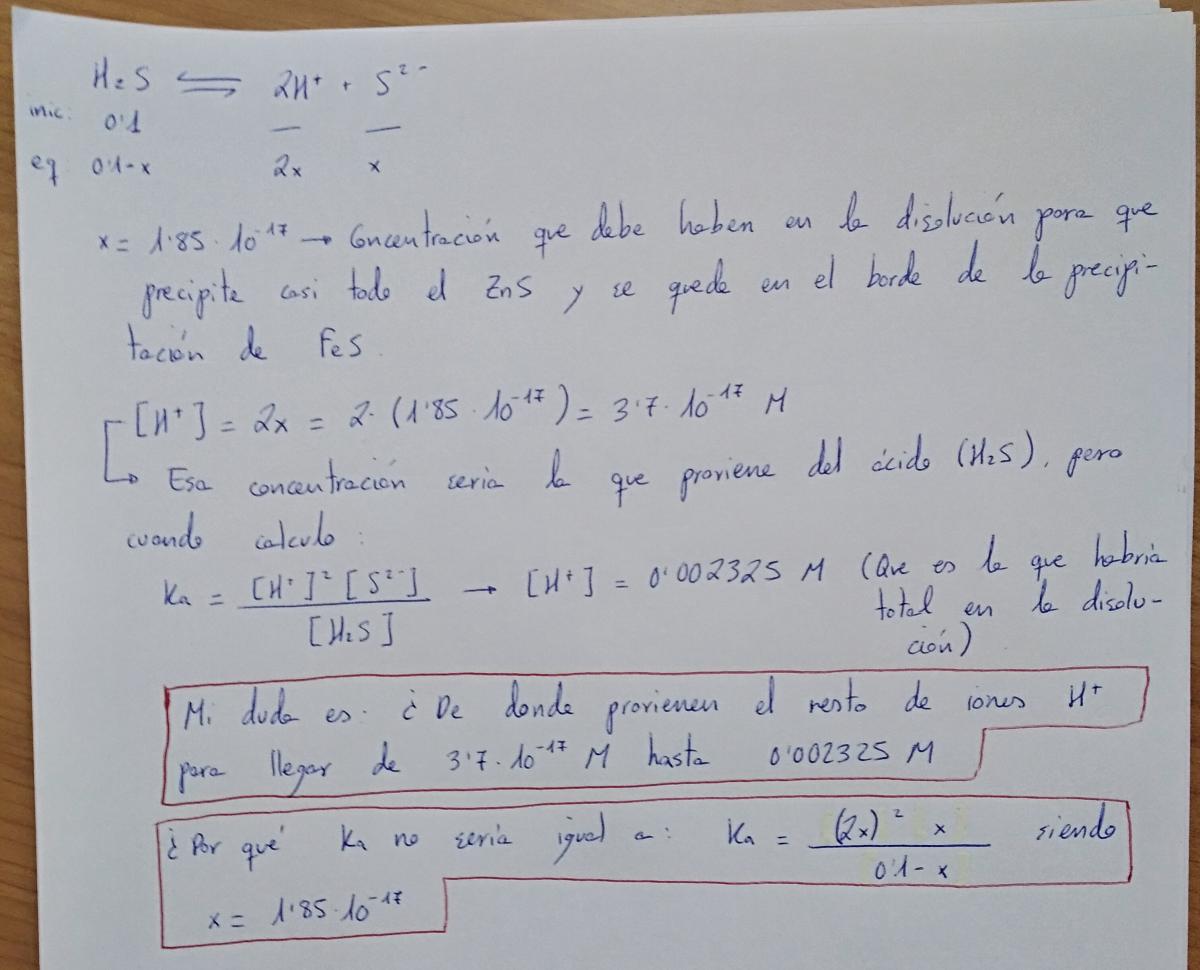 H₂S ⇌ 2H⁺ + S²⁻
inic: 0'1 — —
eq 0'1-x 2x x
x = 1'85·10⁻¹⁷ → Concentración que debe haben en la disolución para que
precipite casi todo el ZnS y se quede en el borde de la precipi-
tación de FeS.
[H⁺] = 2x = 2·(1'85·10⁻¹⁷) = 3'7·10⁻¹⁷ M
↳ Esa concentración seria la que proviene del ácido (H₂S), pero
cuando calculo:
Ka = [H⁺]²[S²⁻] / [H₂S] → [H⁺] = 0'002325 M (Que es la que habría
total en la disolu-
ción)
Mi duda es: ¿De donde provienen el resto de iones H⁺
para llegar de 3'7·10⁻¹⁷ M hasta 0'002325 M
¿Por qué Ka no sería igual a: Ka = (2x)² x / 0'1-x siendo
x = 1'85·10⁻¹⁷